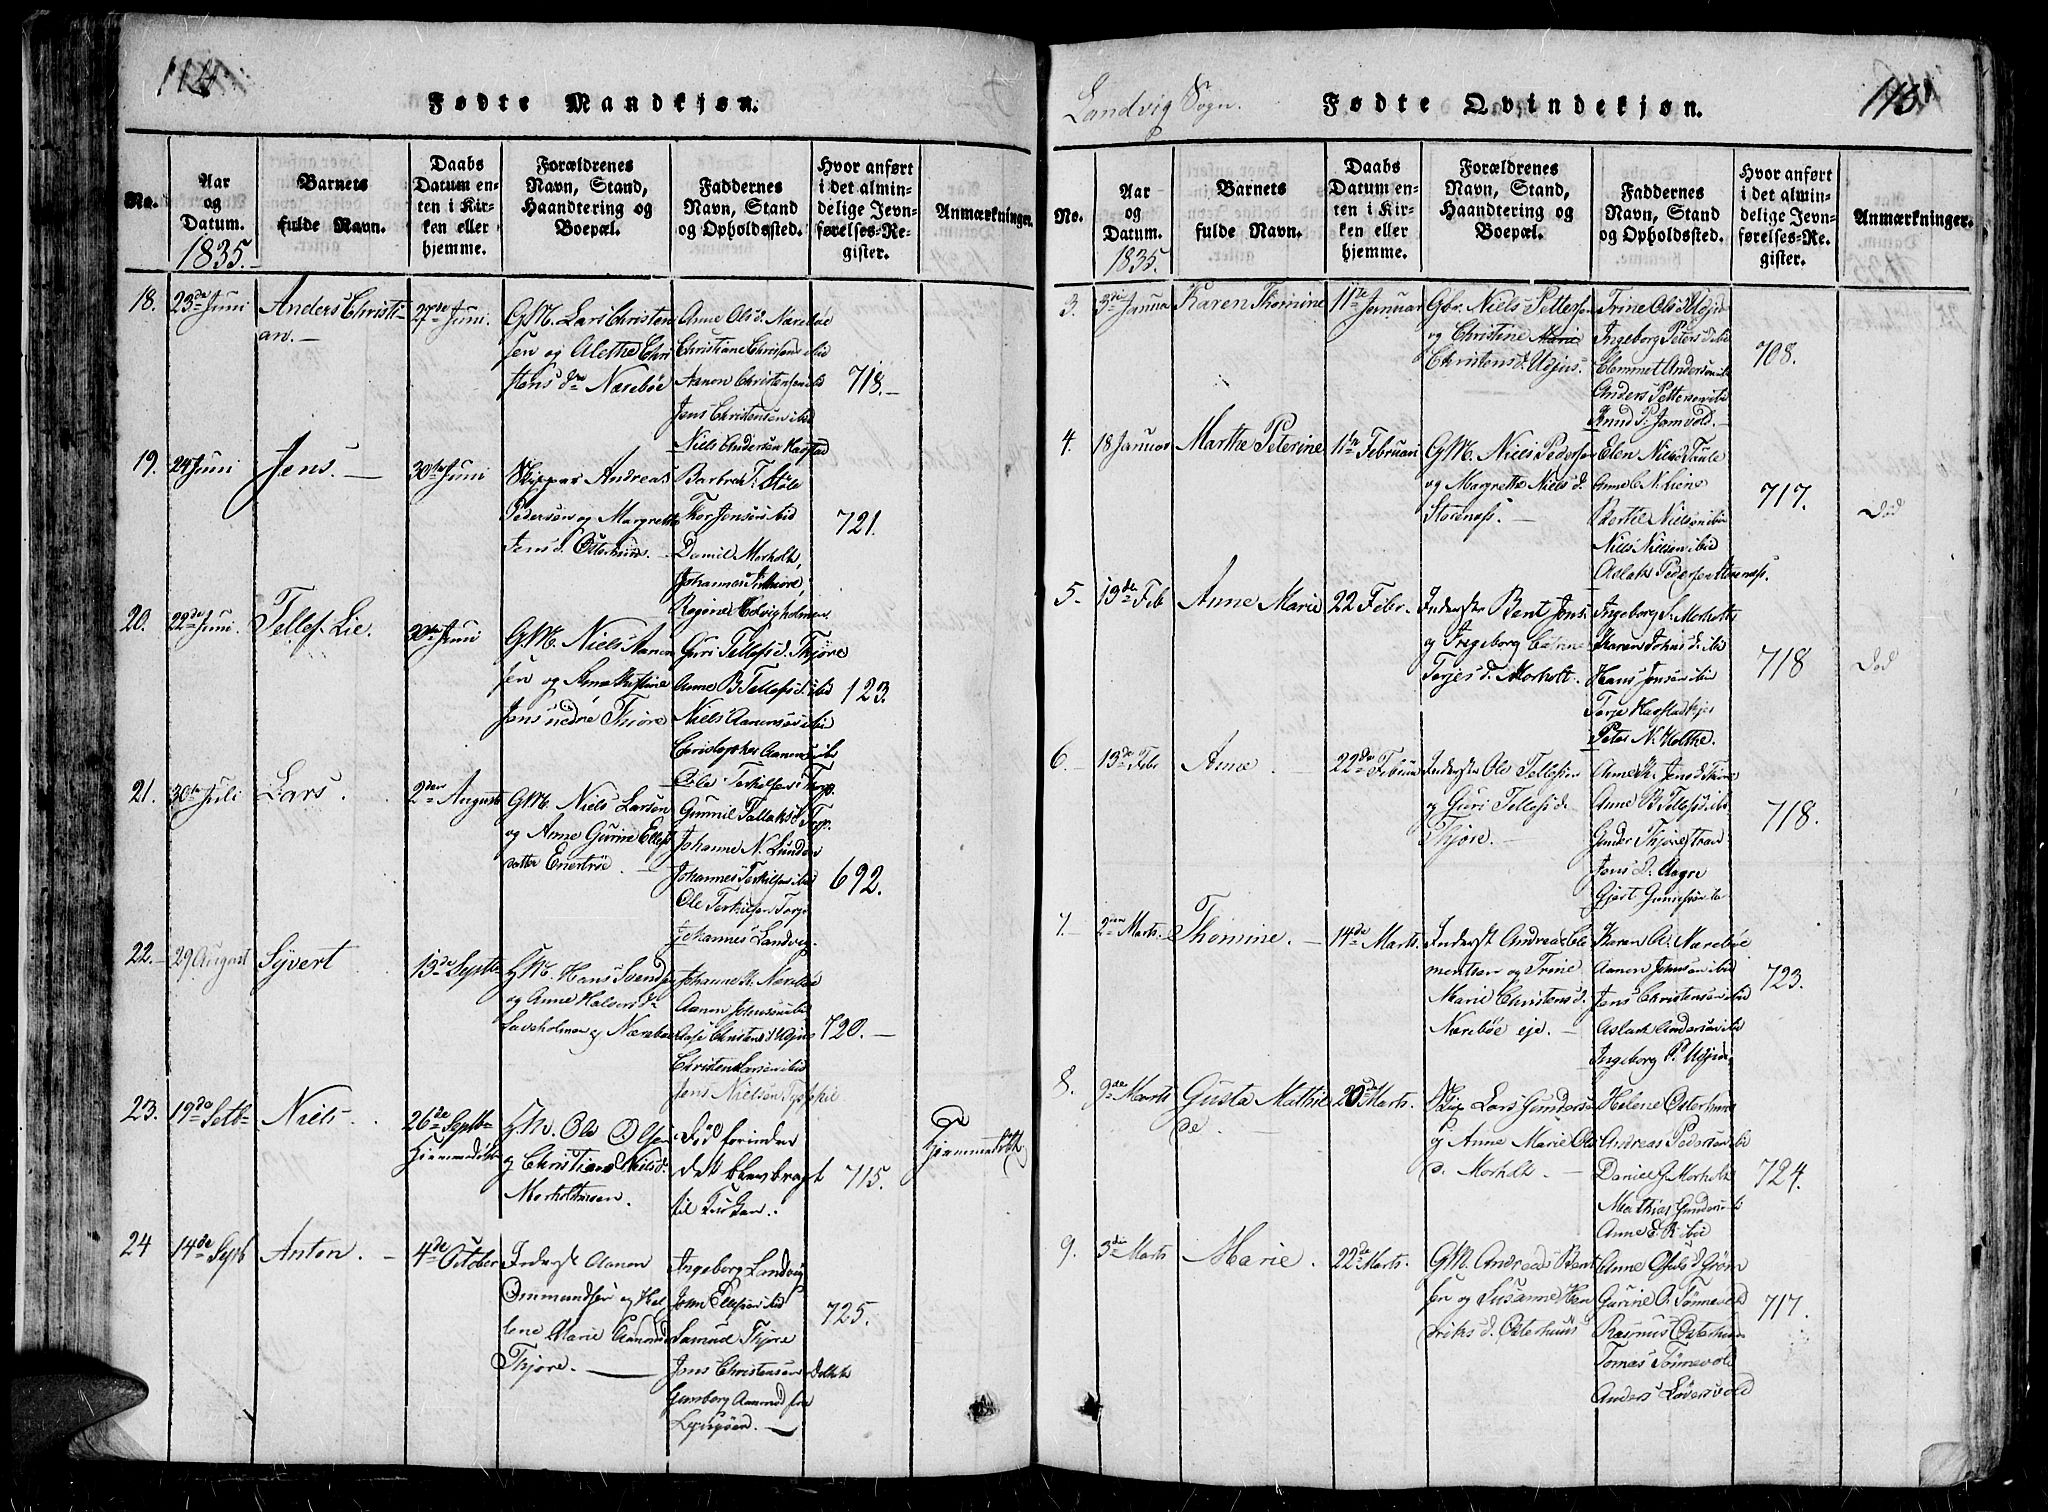 114.
Fødte Mandkjøn.
No.
Aar
og
Datum.
1835.
Barnets
fulde Navn.
Daabs
Datum en-
ten i Kir-
ken eller
hjemme.
Forældrenes
Navn, Stand,
Haandtering og
Boepæl.
Faddernes
Navn, Stand
og Opholdssted.
Hvor anført
i det almin-
delige Jevn-
førelses-Re-
gister.
Anmærkninger.
18.
23de Juni
Anders Christi-
an.
27de Juni.
GM. Lars Christen
sen og Alethe Chri
stens dr Nærebøe
Anne Ols d. Nærebøe
Christiane Christens ibid
Aanon Christensen ibid
Jens Christensen ibid
Niels Andersen Harstad
718.
19.
24 Juni
Jens.
30te Juni
Skipper Andreas
Pedersen og Margrethe
Jens d. Osterhuus.
Barbra T. Støle
Thor Jensen ibid
Daniel Morholt,
Johannes
721.
20.
22de Juni.
Tellef Lie.
30te Juni
GM. Niels Aanon
sen og
Jens nedre Thjøre
Guri Tellefs d. Thjøre
Anne B Tellefs d. ibid
Niels Aanonsen ibid
Christopher Aanons ibid
Ole Terkelsen Torp
123.
21.
30te Juli
Lars.
2den August
GM. Niels Larsen
og Anne Gurine Ellefs
datter Enertrøe
Gunnil Tallaks d Torp.
Johanne N. Lunden
Johannes Terkilsen ibid
Ole Terkilsen Torp
Johannes Landvig.
692.
22.
29 August
Syvert
13de Septb
GM. Hans Svends
og Anne Halvors d.
Laveholmen og Nærebøe
Johanne K. Nærebøe
Aanon Johnsen ibid
Aase Christens d Udjus
Christen Larsen ibid
Jens Nielsen
720.
23.
19de Setb
Niels
26de Septb
Hjemmedøbt
GM. Ole Olsen
og Christiane Niels d.
Morholtmoen.
Død forinden
det blev bragt
til Kirken.
715.
Hjemmedøbt
24
14de Septb
Anton.
4de October
Inderst Aanon
Ommundsen og Hel
lene Marie Aanonsd
Thjøre.
Ingeborg Landvig
John Ellefsen ibid
Samuel Thjøre
Jens Christensen
Gunborg Aanonsd
725.
Landvig Sogn.
Fødte Qvindekjøn.
115.
No.
Aar
og
Datum.
1835.
Barnets
fulde Navn.
Daabs
Datum en-
ten i Kir-
ken eller
hjemme.
Forældrenes
Navn, Stand,
Haandtering og
Boepæl.
Faddernes
Navn, Stand
og Opholdssted.
Hvor anført
i det almin-
delige Jevn-
førelses-Re-
gister.
Anmærkninger.
3.
3die Januar
Karen Thomine
11te Januar
Gbr. Niels Pettersen
og Christine Marie
Christens d. Udjus.
Trine Ols d Udjus
Ingeborg Peters d ibid
Clemmet Andersen ib
Anders Pettersen ibid
Knud P. Jamvold.
708.
4.
18 Januar
Marthe Peterine
11te Februari
GM. Niels Pedersen
og Margrethe Niels d.
Storenæs.
Elen Niels d Taule
Anne C N. Liene
Bertil Nielsen ibid
Niels Nielsen ibid
Aslak Pedersen Storenæs.
717.
Død
5.
19de Feb
Anne Marie
22 Febr.
Inderste Bent Jens.
og Ingeborg
Terjes d. Morholt.
Ingeborg S. Morholt
Karen Johns d. ibid
Hans Jensen ibid
Terje
Peter N. Holthe.
718
Død
6.
13de Febr
Anne
22de Februar
Inderste Ole Tellefsen
og Guri Tellefs d.
Thjøre.
Anne K. Jens d Thjøre
Anne B Tellefs d. ibid
Gunder Thjørestran
Jens D. Aagre
Gjert Gunnersen
718.
7.
2den Marts.
Thomine.
14de Marts.
Inderst Andreas Cle
mentsen og Trine
Marie Christens d.
Nærebøe eje.
Karen A. Nærebøe
Aanon Johnsen ibid
Jens Christensen ibid
Aslak Andersen ibid
Ingeborg P. Udjus
723.
8.
9de Marts
Gusta Mathil
de.
20de Marts.
Skip. Lars Gunders
og Anne Marie Ols
d. Morholt
Helene Osterhuus
Andreas Pedersen ibid
Daniel G Morholt
Mathias Gundersen ib
Anne E. R. ibid
724.
9.
3die Marts
Marie
22de Marts.
GM. Andreas Bent
sen og Susanne Hen
driks d. Osterhuus
Anne Ols d. Grøm
Gurine A Tønnevold
Rasmus Osterhuus
Tomas Tønnevold
Anders Løversvold
717.